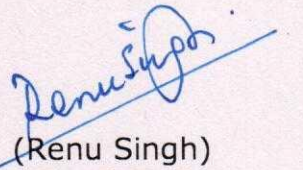 Renu Singh
(Renu Singh)